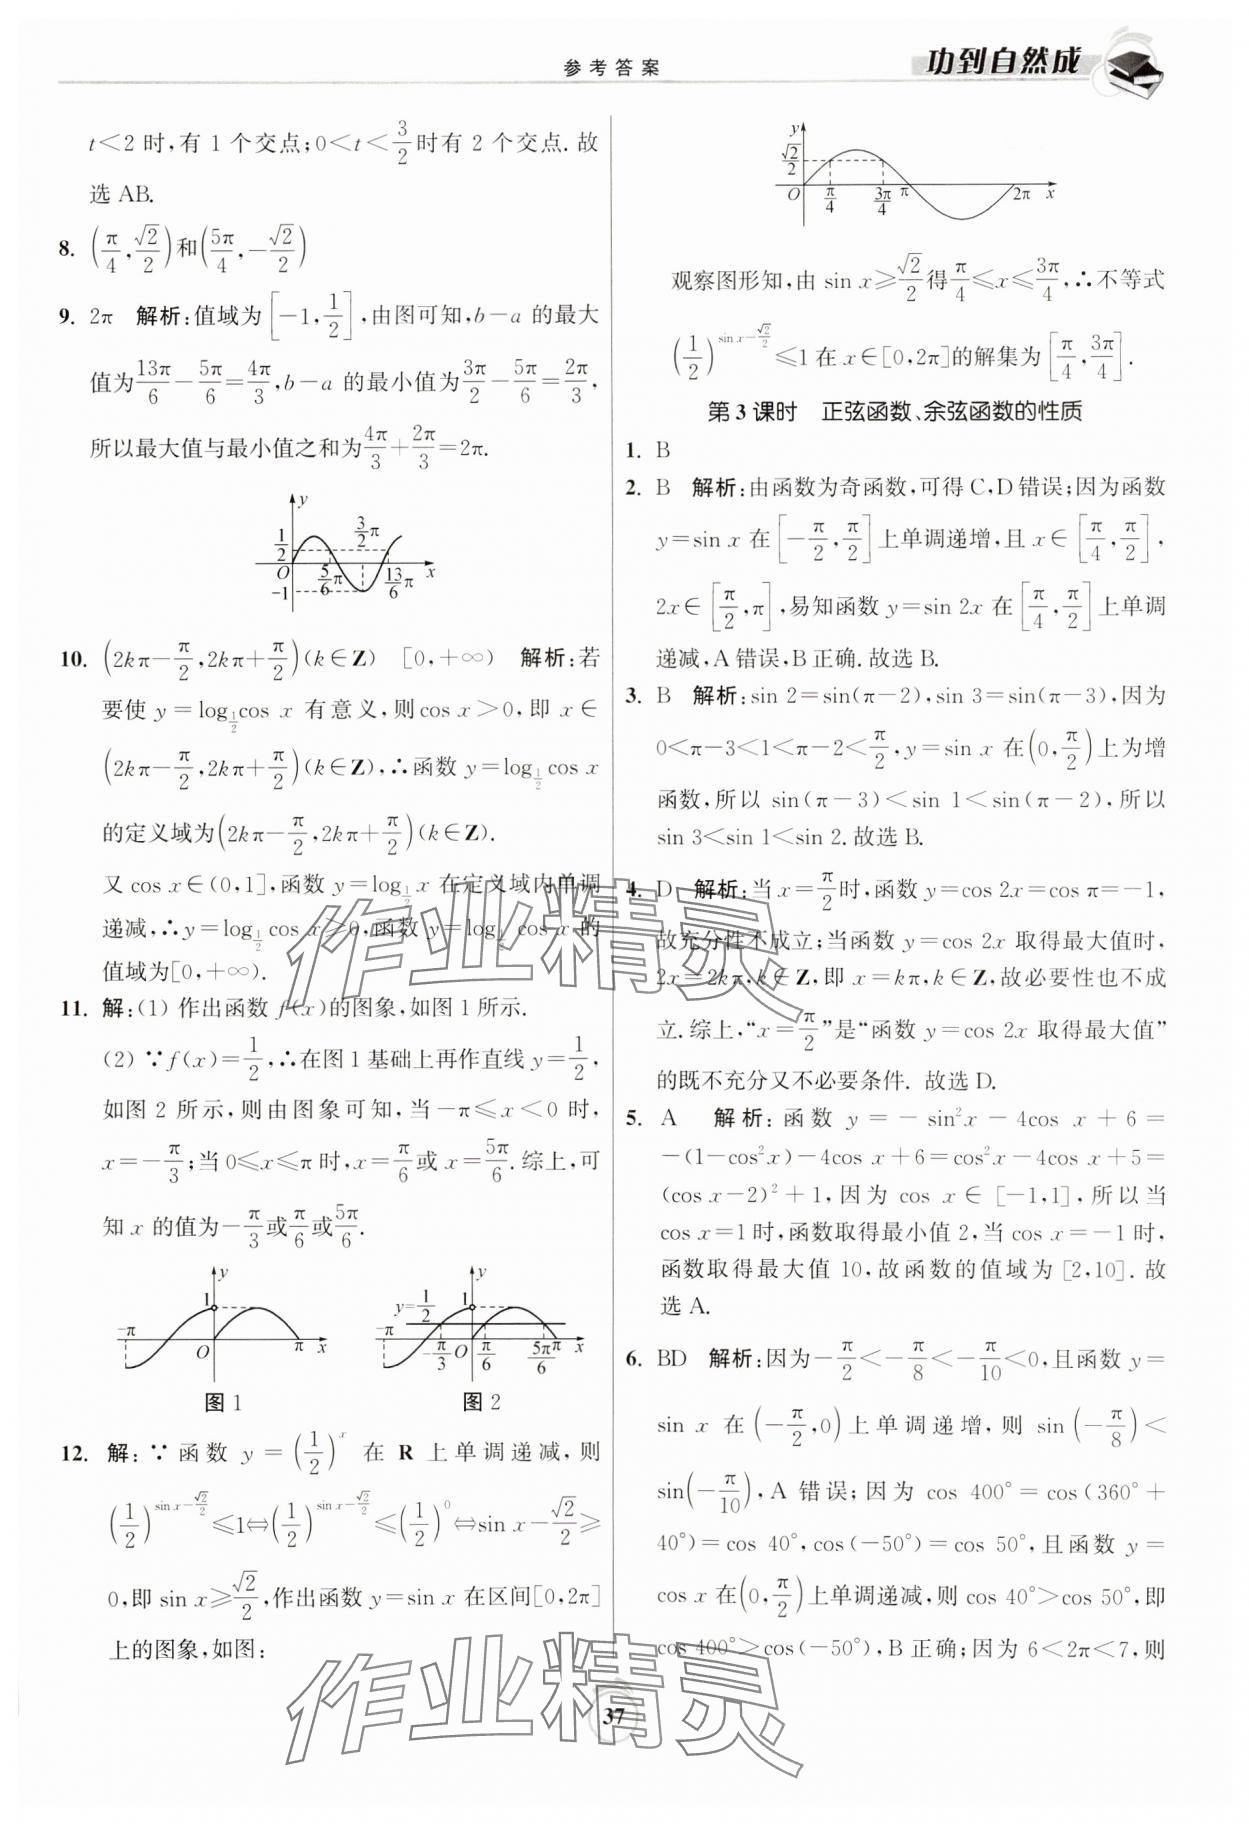 参考答案
功到自然成
t<2 时,有 1 个交点;0<t<3/2时有 2 个交点. 故
选 AB.
8. (π/4,√2/2)和(5π/4,-√2/2)
9. 2π 解析:值域为[-1,1/2],由图可知,b-a 的最大
值为13π/6-5π/6=4π/3,b-a 的最小值为3π/2-5π/6=2π/3,
所以最大值与最小值之和为4π/3+2π/3=2π.
y
1/2
3/2π
O
5/6π
13/6π
x
-1
10. (2kπ-π/2,2kπ+π/2)(k∈Z) [0,+∞) 解析:若
要使 y=log_{1/2}cos x 有意义,则cos x>0,即 x∈
(2kπ-π/2,2kπ+π/2)(k∈Z),∴函数 y=log_{1/2}cos x
的定义域为(2kπ-π/2,2kπ+π/2)(k∈Z).
又 cos x∈(0,1],函数 y=log_{1/2}x 在定义域内单调
递减,∴y=log_{1/2}cos x≥0,函数 y=log_{1/2}cos x 的
值域为[0,+∞).
11. 解:(1) 作出函数 f(x)的图象,如图 1 所示.
(2) ∵f(x)=1/2,∴在图 1 基础上再作直线 y=1/2,
如图 2 所示,则由图象可知,当-π≤x<0 时,
x=-π/3;当 0≤x≤π时,x=π/6或 x=5π/6.综上,可
知 x 的值为-π/3或π/6或5π/6.
y
1
-π
O
π
x
图 1
y
y=1/2
1
-π
-π/3
O
π/6
5π/6
π
x
图 2
12. 解:∵函数 y=(1/2)^x 在 R 上单调递减,则
(1/2)^{sin x-√2/2}≤1⇔(1/2)^{sin x-√2/2}≤(1/2)^0⇔sin x-√2/2≥
0,即 sin x≥√2/2,作出函数 y=sin x 在区间[0,2π]
上的图象,如图:
y
√2/2
O
π/4
3π/4
π
2π
x
观察图形知,由 sin x≥√2/2得π/4≤x≤3π/4,∴不等式
(1/2)^{sin x-√2/2}≤1 在 x∈[0,2π]的解集为[π/4,3π/4].
第 3 课时 正弦函数、余弦函数的性质
1. B
2. B 解析:由函数为奇函数,可得 C,D 错误;因为函数
y=sin x 在[-π/2,π/2]上单调递增,且 x∈[π/4,π/2],
2x∈[π/2,π],易知函数 y=sin 2x 在[π/4,π/2]上单调
递减,A 错误,B 正确.故选 B.
3. B 解析:sin 2=sin(π-2),sin 3=sin(π-3),因为
0<π-3<1<π-2<π/2,y=sin x 在(0,π/2)上为增
函数,所以 sin(π-3)<sin 1<sin(π-2),所以
sin 3<sin 1<sin 2.故选 B.
4. D 解析:当 x=π/2时,函数 y=cos 2x=cos π=-1,
故充分性不成立;当函数 y=cos 2x 取得最大值时,
2x=2kπ,k∈Z,即 x=kπ,k∈Z,故必要性也不成
立.综上,“x=π/2”是“函数 y=cos 2x 取得最大值”
的既不充分又不必要条件. 故选 D.
5. A 解析:函数 y=-sin²x-4cos x+6=
-(1-cos²x)-4cos x+6=cos²x-4cos x+5=
(cos x-2)²+1,因为 cos x∈[-1,1],所以当
cos x=1 时,函数取得最小值 2,当 cos x=-1 时,
函数取得最大值 10,故函数的值域为[2,10].故
选 A.
6. BD 解析:因为-π/2<-π/8<-π/10<0,且函数 y=
sin x 在(-π/2,0)上单调递增,则 sin(-π/8)<
sin(-π/10),A 错误;因为 cos 400°=cos(360°+
40°)=cos 40°,cos(-50°)=cos 50°,且函数 y=
cos x 在(0,π/2)上单调递减,则 cos 40°>cos 50°,即
cos 400°>cos(-50°),B 正确;因为 6<2π<7,则
作业精灵
作业精灵
37